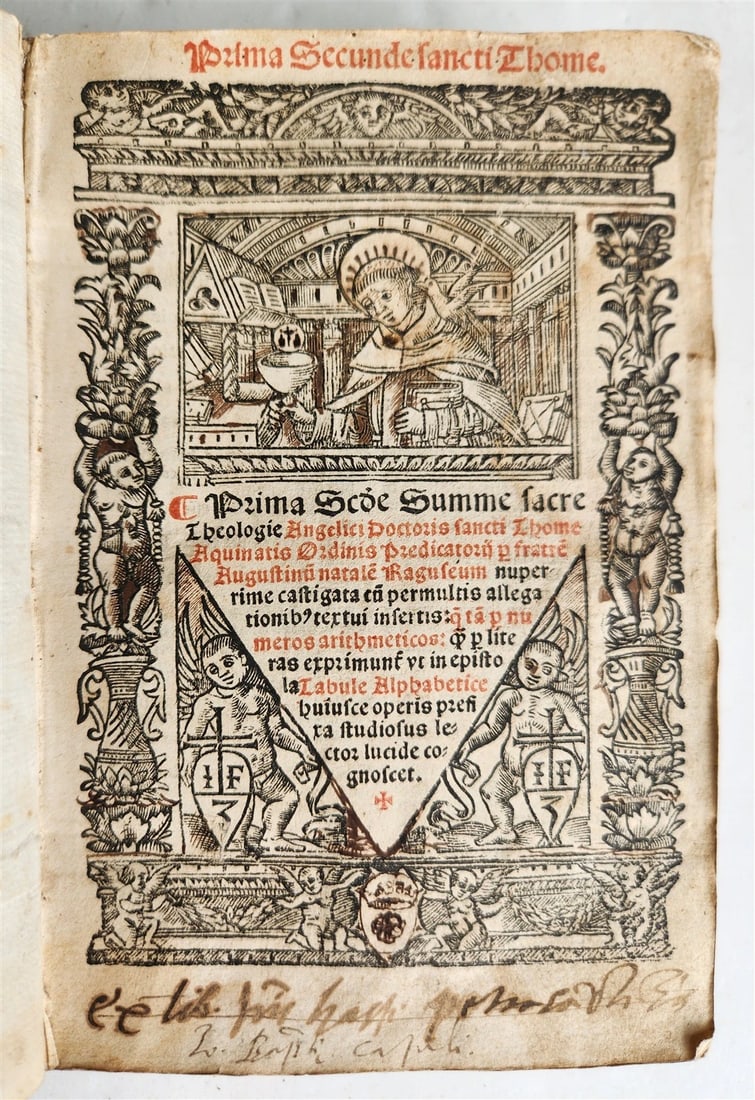 Prima Secunde sancti Thome.
¶ Prima Scďe Summe sacre
Theologie Angelici Doctoris sancti Thome
Aquinatis Ordinis Predicatorũ ꝑ fratrẽ
Augustinũ natalẽ Raguseum nuper-
rime castigata cũ permultis allega
tionibꝰ textui insertis: q̃ tã ꝑ nu
meros arithmeticos: ꝙ̃ ꝑ lite
ras exprimunt᷑ vt in episto
la Tabule Alphabetice
huiusce operis prefi
xa studiosus le-
ctor lucide co-
gnoscet.
I F
I F
Ex lib.